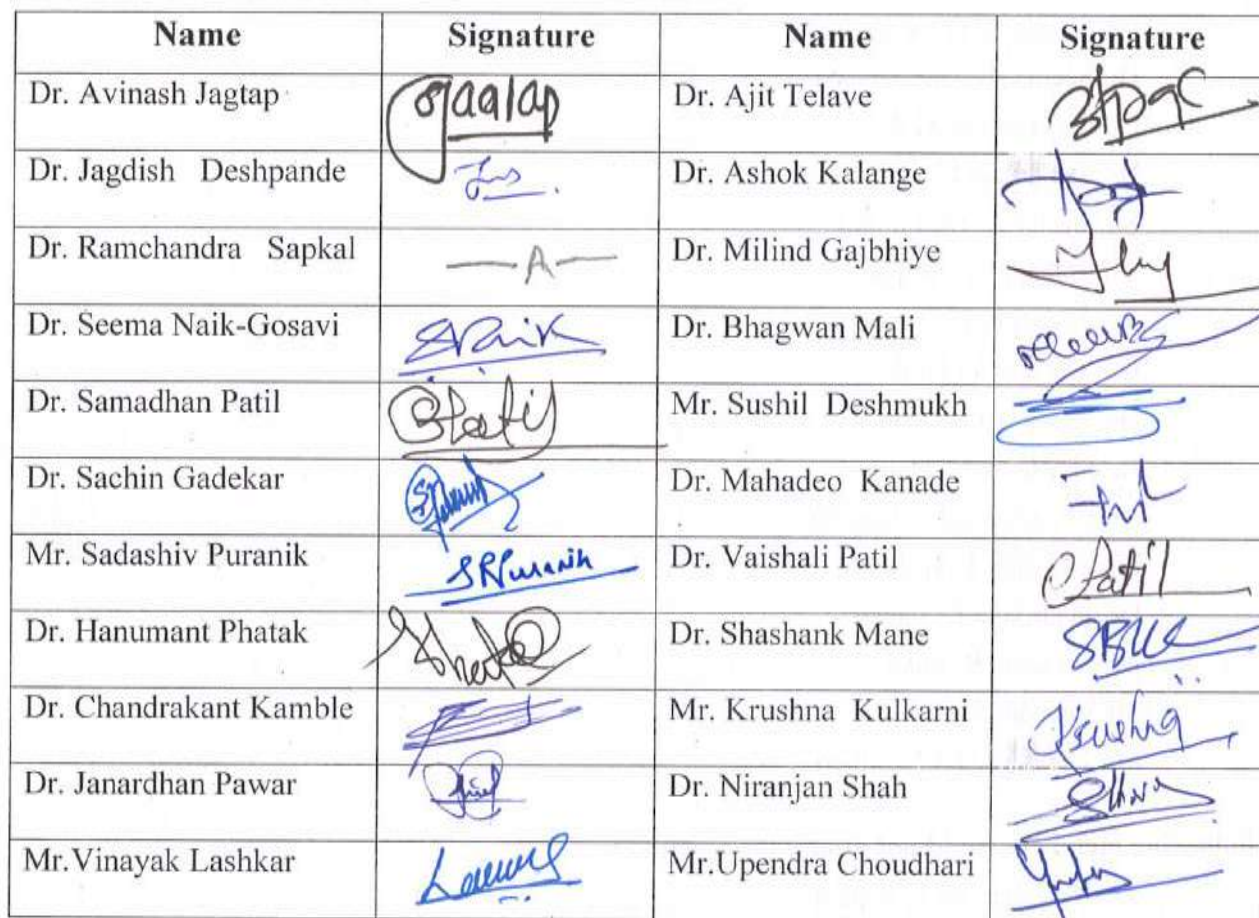 Name Signature Name Signature
Dr. Avinash Jagtap Jagtap Dr. Ajit Telave
Dr. Jagdish Deshpande Dr. Ashok Kalange
Dr. Ramchandra Sapkal —A— Dr. Milind Gajbhiye
Dr. Seema Naik-Gosavi SNaik Dr. Bhagwan Mali
Dr. Samadhan Patil SPatil Mr. Sushil Deshmukh
Dr. Sachin Gadekar Dr. Mahadeo Kanade
Mr. Sadashiv Puranik SRPuranik Dr. Vaishali Patil Patil
Dr. Hanumant Phatak Dr. Shashank Mane
Dr. Chandrakant Kamble Mr. Krushna Kulkarni Krushna
Dr. Janardhan Pawar Dr. Niranjan Shah
Mr.Vinayak Lashkar Mr.Upendra Choudhari